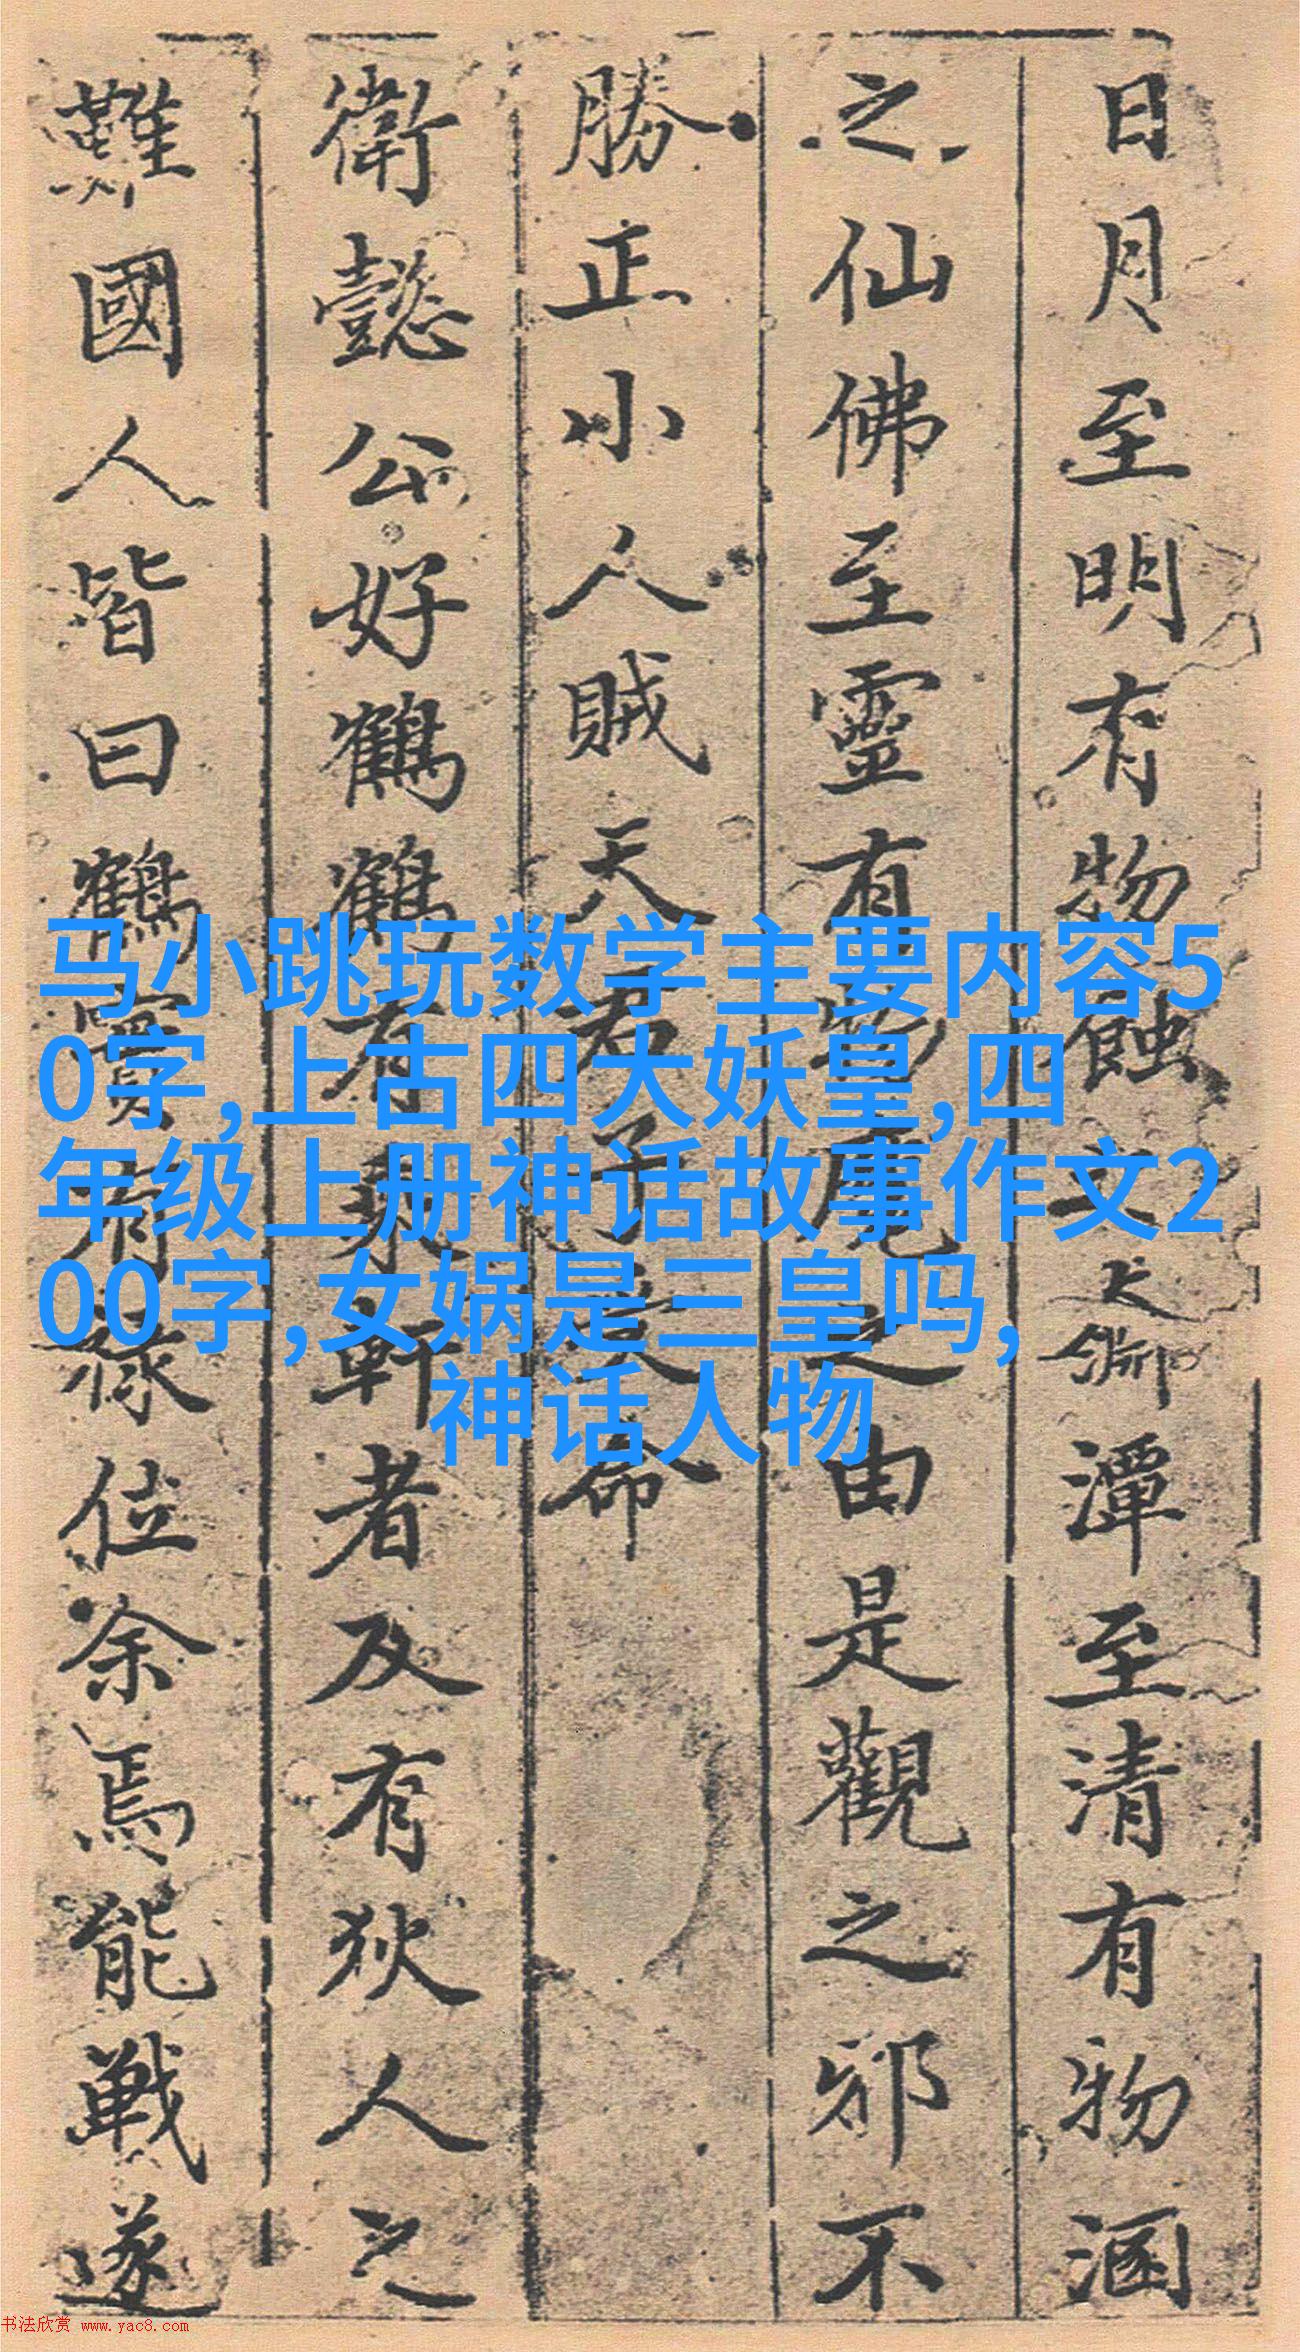 日月至明有物蝕之大潭至清有物涵
之仙佛至靈有物尾之由是觀之邪不
勝正小人賊天君子受命
衛懿公好鶴鶴有乘軒者及有狄人之
難國人皆曰鶴實有祿位余焉能戰遂
马小跳玩数学主要内容5
0字,上古四大妖皇,四
年级上册神话故事作文2
00字,女娲是三皇吗,
神话人物
书法欣赏 www.yac8.com